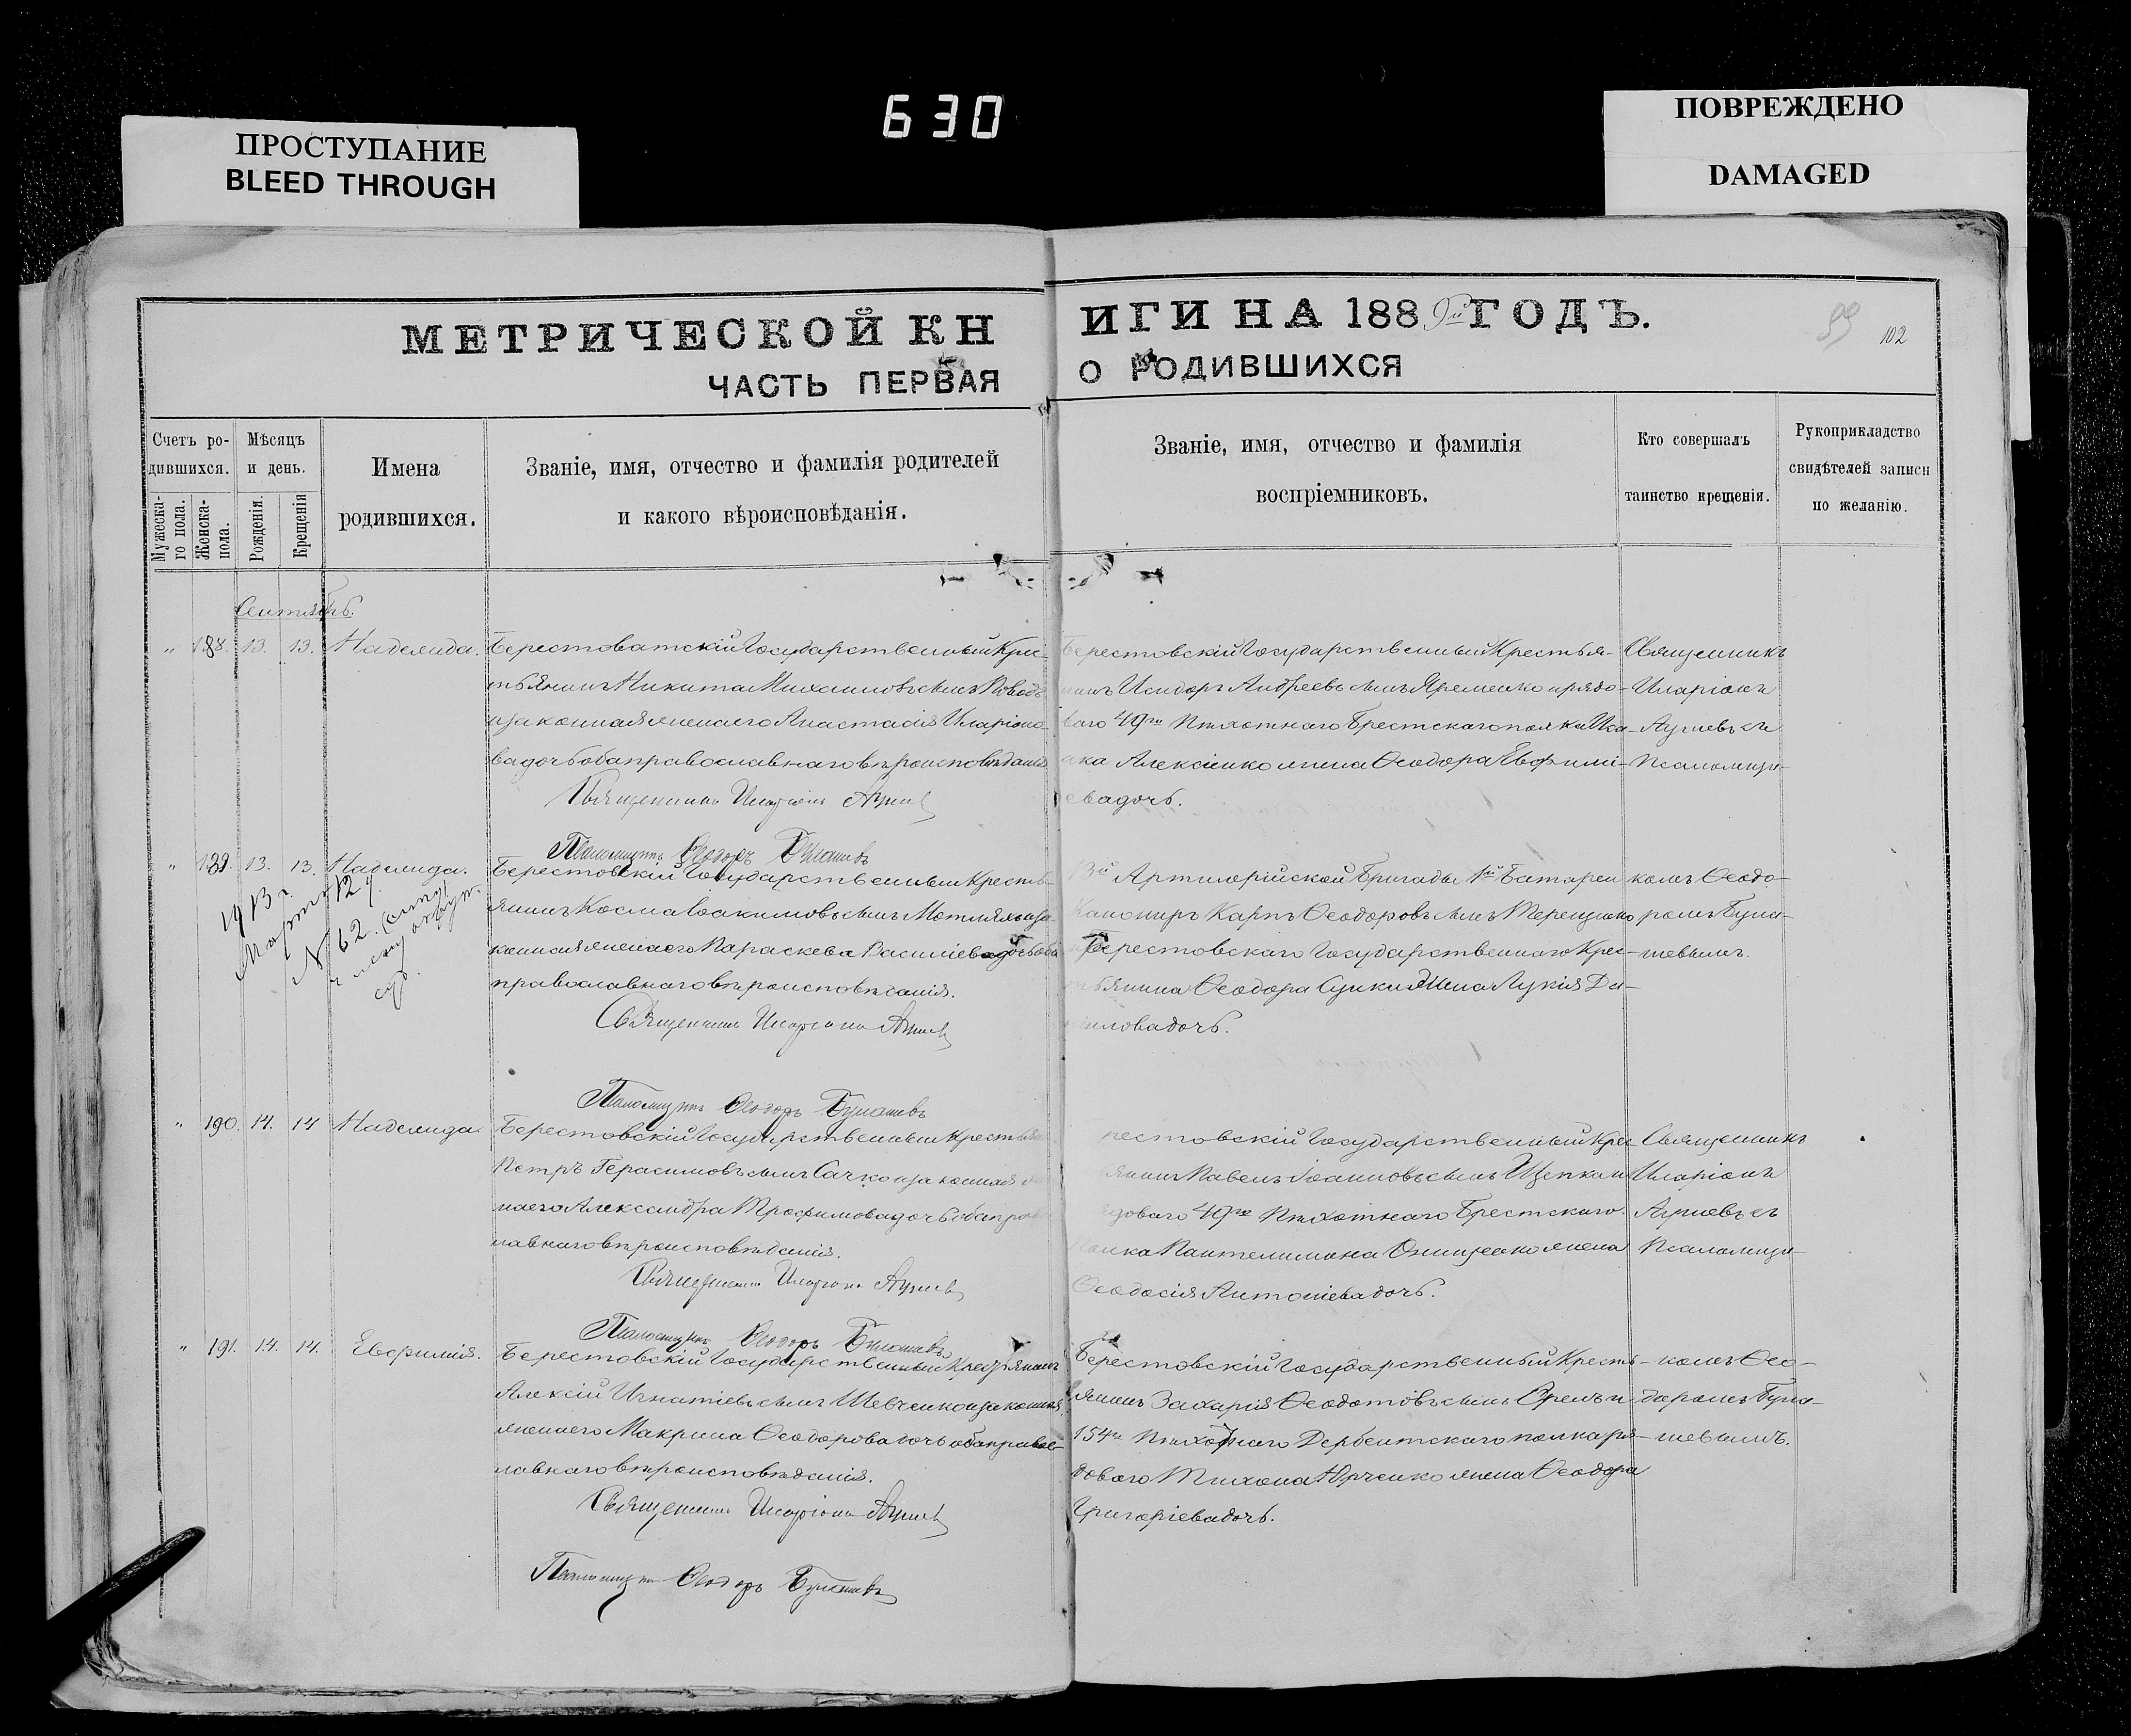 630
ПРОСТУПАНИЕ
BLEED THROUGH
ПОВРЕЖДЕНО
DAMAGED
МЕТРИЧЕСКОЙ КНИГИ НА 1889й ГОДЪ.
99 102
ЧАСТЬ ПЕРВАЯ О РОДИВШИХСЯ
Счетъ ро-
дившихся.
Мужеска-
го пола.
Женска-
пола.
Мѣсяцъ
и день.
Рожденія.
Крещенія
Имена
родившихся.
Званіе, имя, отчество и фамилія родителей
и какого вѣроисповѣданія.
Званіе, имя, отчество и фамилія
воспріемниковъ.
Кто совершалъ
таинство крещенія.
Рукоприкладство
свидѣтелей записи
по желанію.
Сентябрь.
" 188. 13. 13. Надежда.
Берестоватскій Государственный Крес-
тьянинъ Никита Михаиловъ сынъ
и законная жена его Анастасія Иларіоно-
ва дочь оба православнаго вѣроисповѣданія
Священникъ Иларіонъ
Псаломщикъ Ѳеодоръ Булашевъ
Берестовскій Государственный Крестья-
нинъ Исидоръ Андреевъ сынъ Яременко и рядо-
ваго 49го Пѣхотнаго Брестскаго полка
Алексіенко жена Ѳеодора Евфимі-
ева дочь.
Священникъ
Иларіонъ
съ
Псаломщи-
" 189. 13. 13. Надежда.
1913 г.
Марта 12
№ 62.
Берестовскій Государственный Кресть-
янинъ Косма Іоакимовъ сынъ и за-
конная жена его Параскева Василіева дочь оба
православнаго вѣроисповѣданія.
Священникъ Иларіонъ
Псаломщикъ Ѳеодоръ Булашевъ
3й Артилерійской Бригады 1й Батареи
Канониръ Карпъ Ѳеодоровъ сынъ Терещенко
и Берестовскаго Государственнаго Крес-
тьянина Ѳеодора жена Лукія Да-
ниловадочь.
комъ Ѳеодо-
ромъ Була-
шевымъ.
" 190. 14. 14 Надежда.
Берестовскій Государственный Крестьянинъ
Петръ Герасимовъ сынъ Сачко и законная
жена его Александра Трофимова дочь оба правос-
лавнаго вѣроисповѣданія.
Священникъ Иларіонъ
Псаломщикъ Ѳеодоръ Булашевъ
рестовскій Государственный Крес
янинъ Павелъ Іоанновъ сынъ Щепка и
рядоваго 49го Пѣхотнаго Брестскаго
полка Пантелимона Онищенко жена
Ѳеодосія Антоніева дочь.
Священникъ
Иларіонъ
съ
Псаломщи-
" 191. 14. 14. Евфимія.
Берестовскій Государственный Крестьянинъ
Алексій Игнатіевъ сынъ Шевченко и законная
жена его Макрина Ѳеодорова дочь оба правос-
лавнаго вѣроисповѣданія.
Священникъ Иларіонъ
Псаломщикъ Ѳеодоръ Булашевъ
Берестовскій Государственный Кресть-
янинъ Захарія Ѳеодотовъ сынъ и
154го Пѣхотнаго Дербентскаго полка ря-
доваго Тихона Юрченко жена Ѳеодора
Григоріева дочь.
комъ Ѳео-
доромъ Була-
шевымъ.